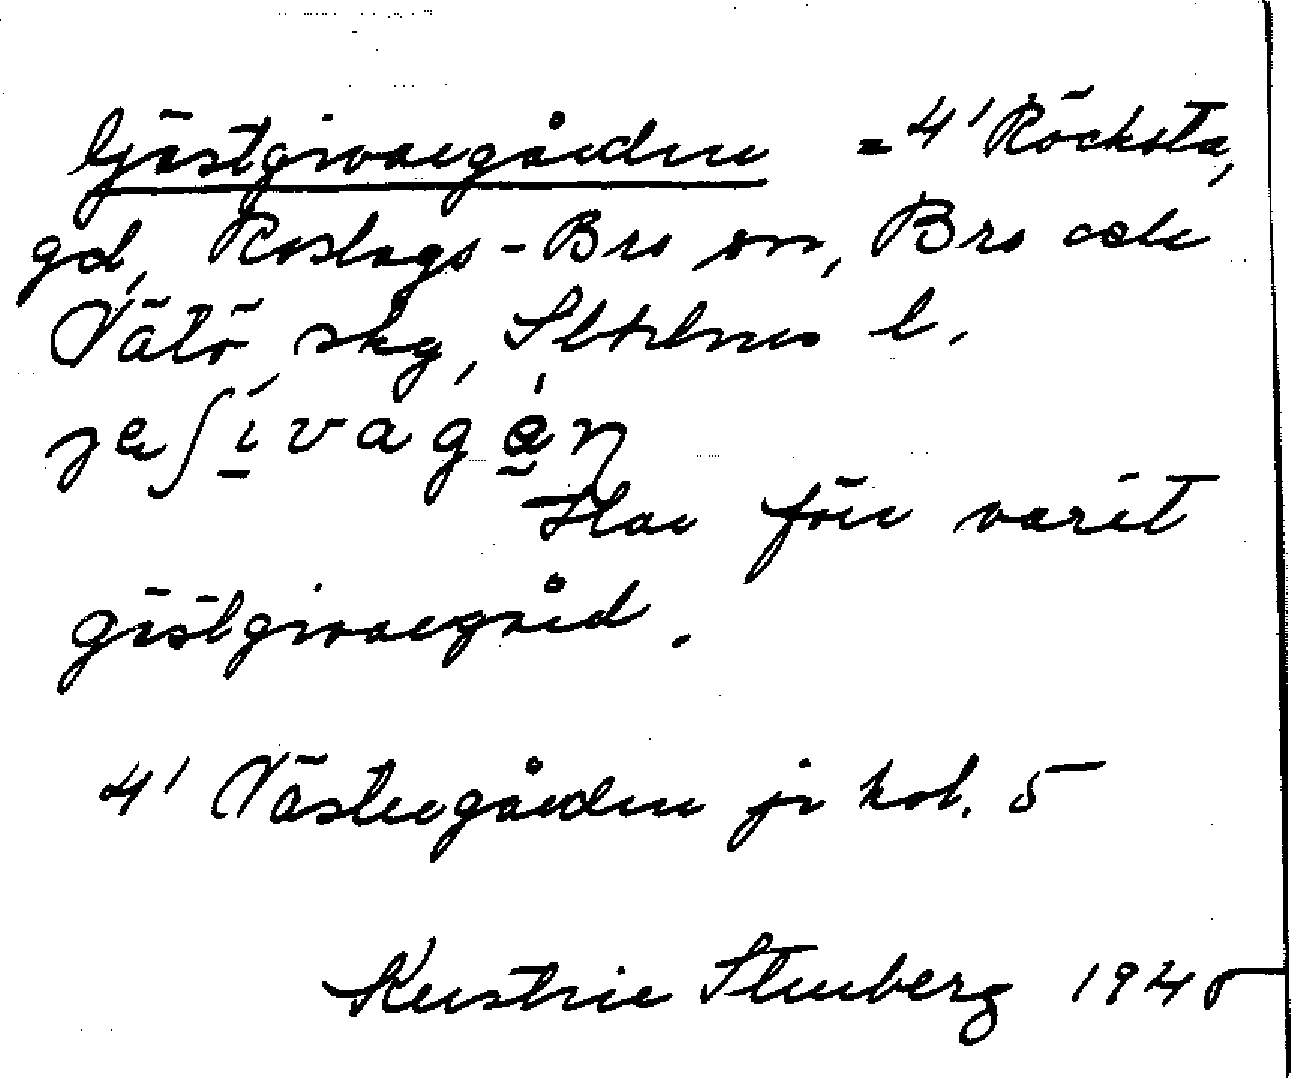 Gästgivaregården = 4' Röcksta,
gd, Roslags-Bro sn, Bro och
Vätö skg, Sthlms l.
Har förr varit
gästgivaregård.
4' Västergården jr kol. 5
Kerstin Stenberg 1945